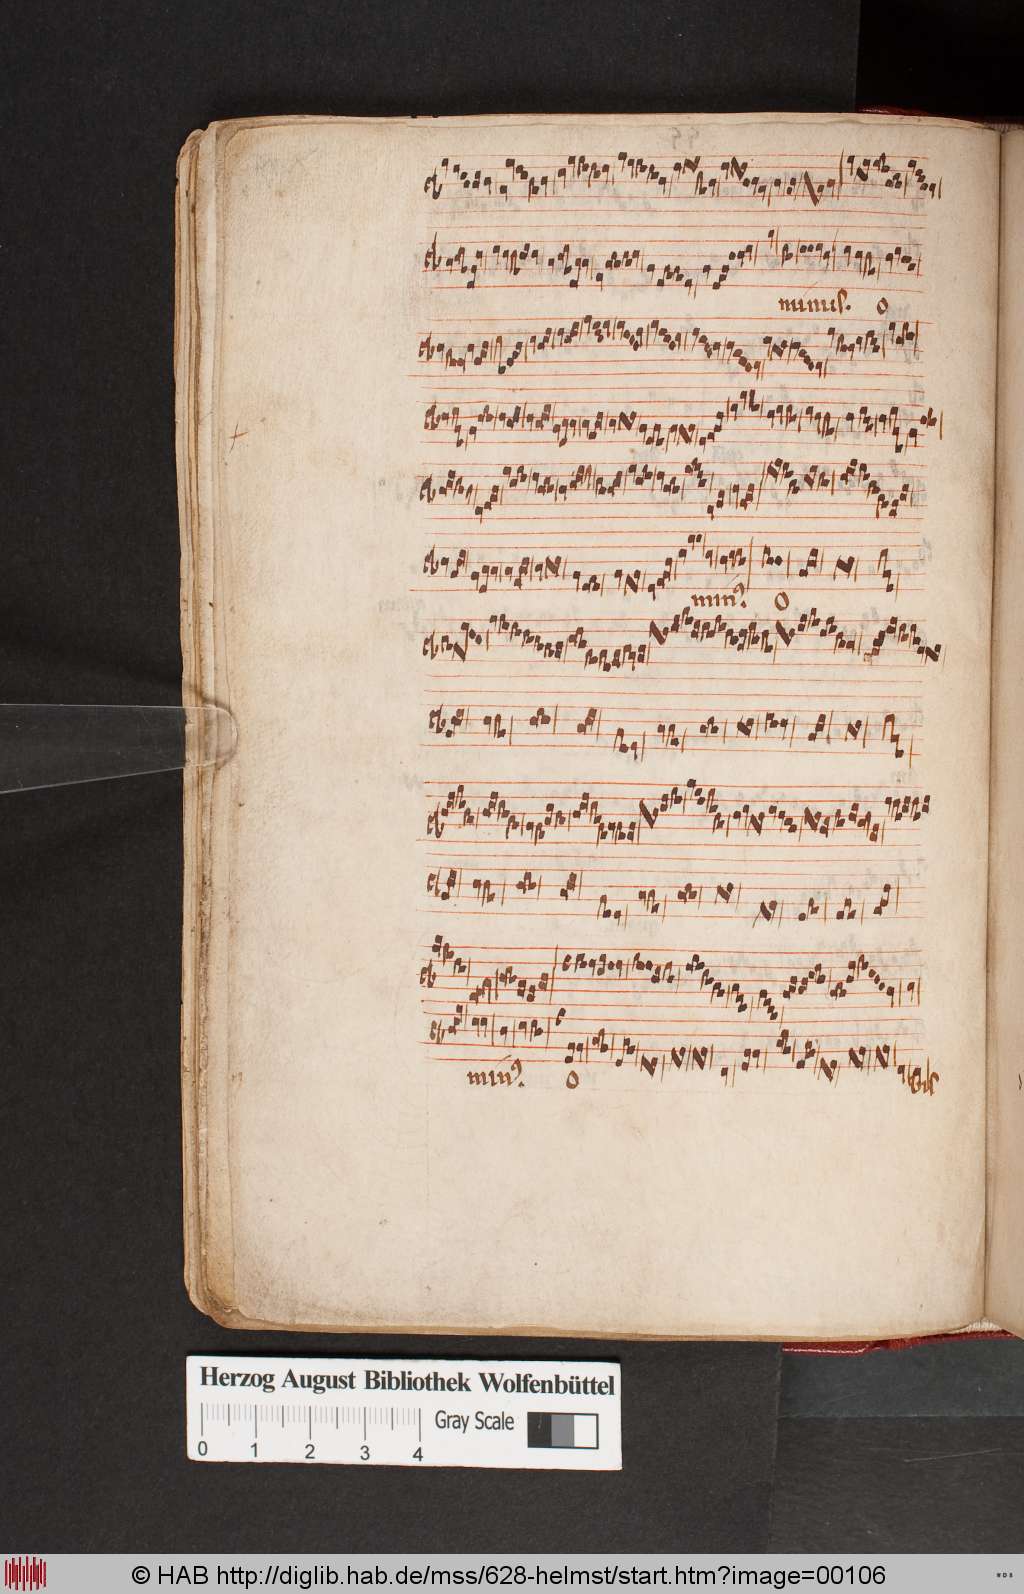 minus. O
min⁹. O
min⁹. O
Herzog August Bibliothek Wolfenbüttel
Gray Scale
0 1 2 3 4
© HAB http://diglib.hab.de/mss/628-helmst/start.htm?image=00106